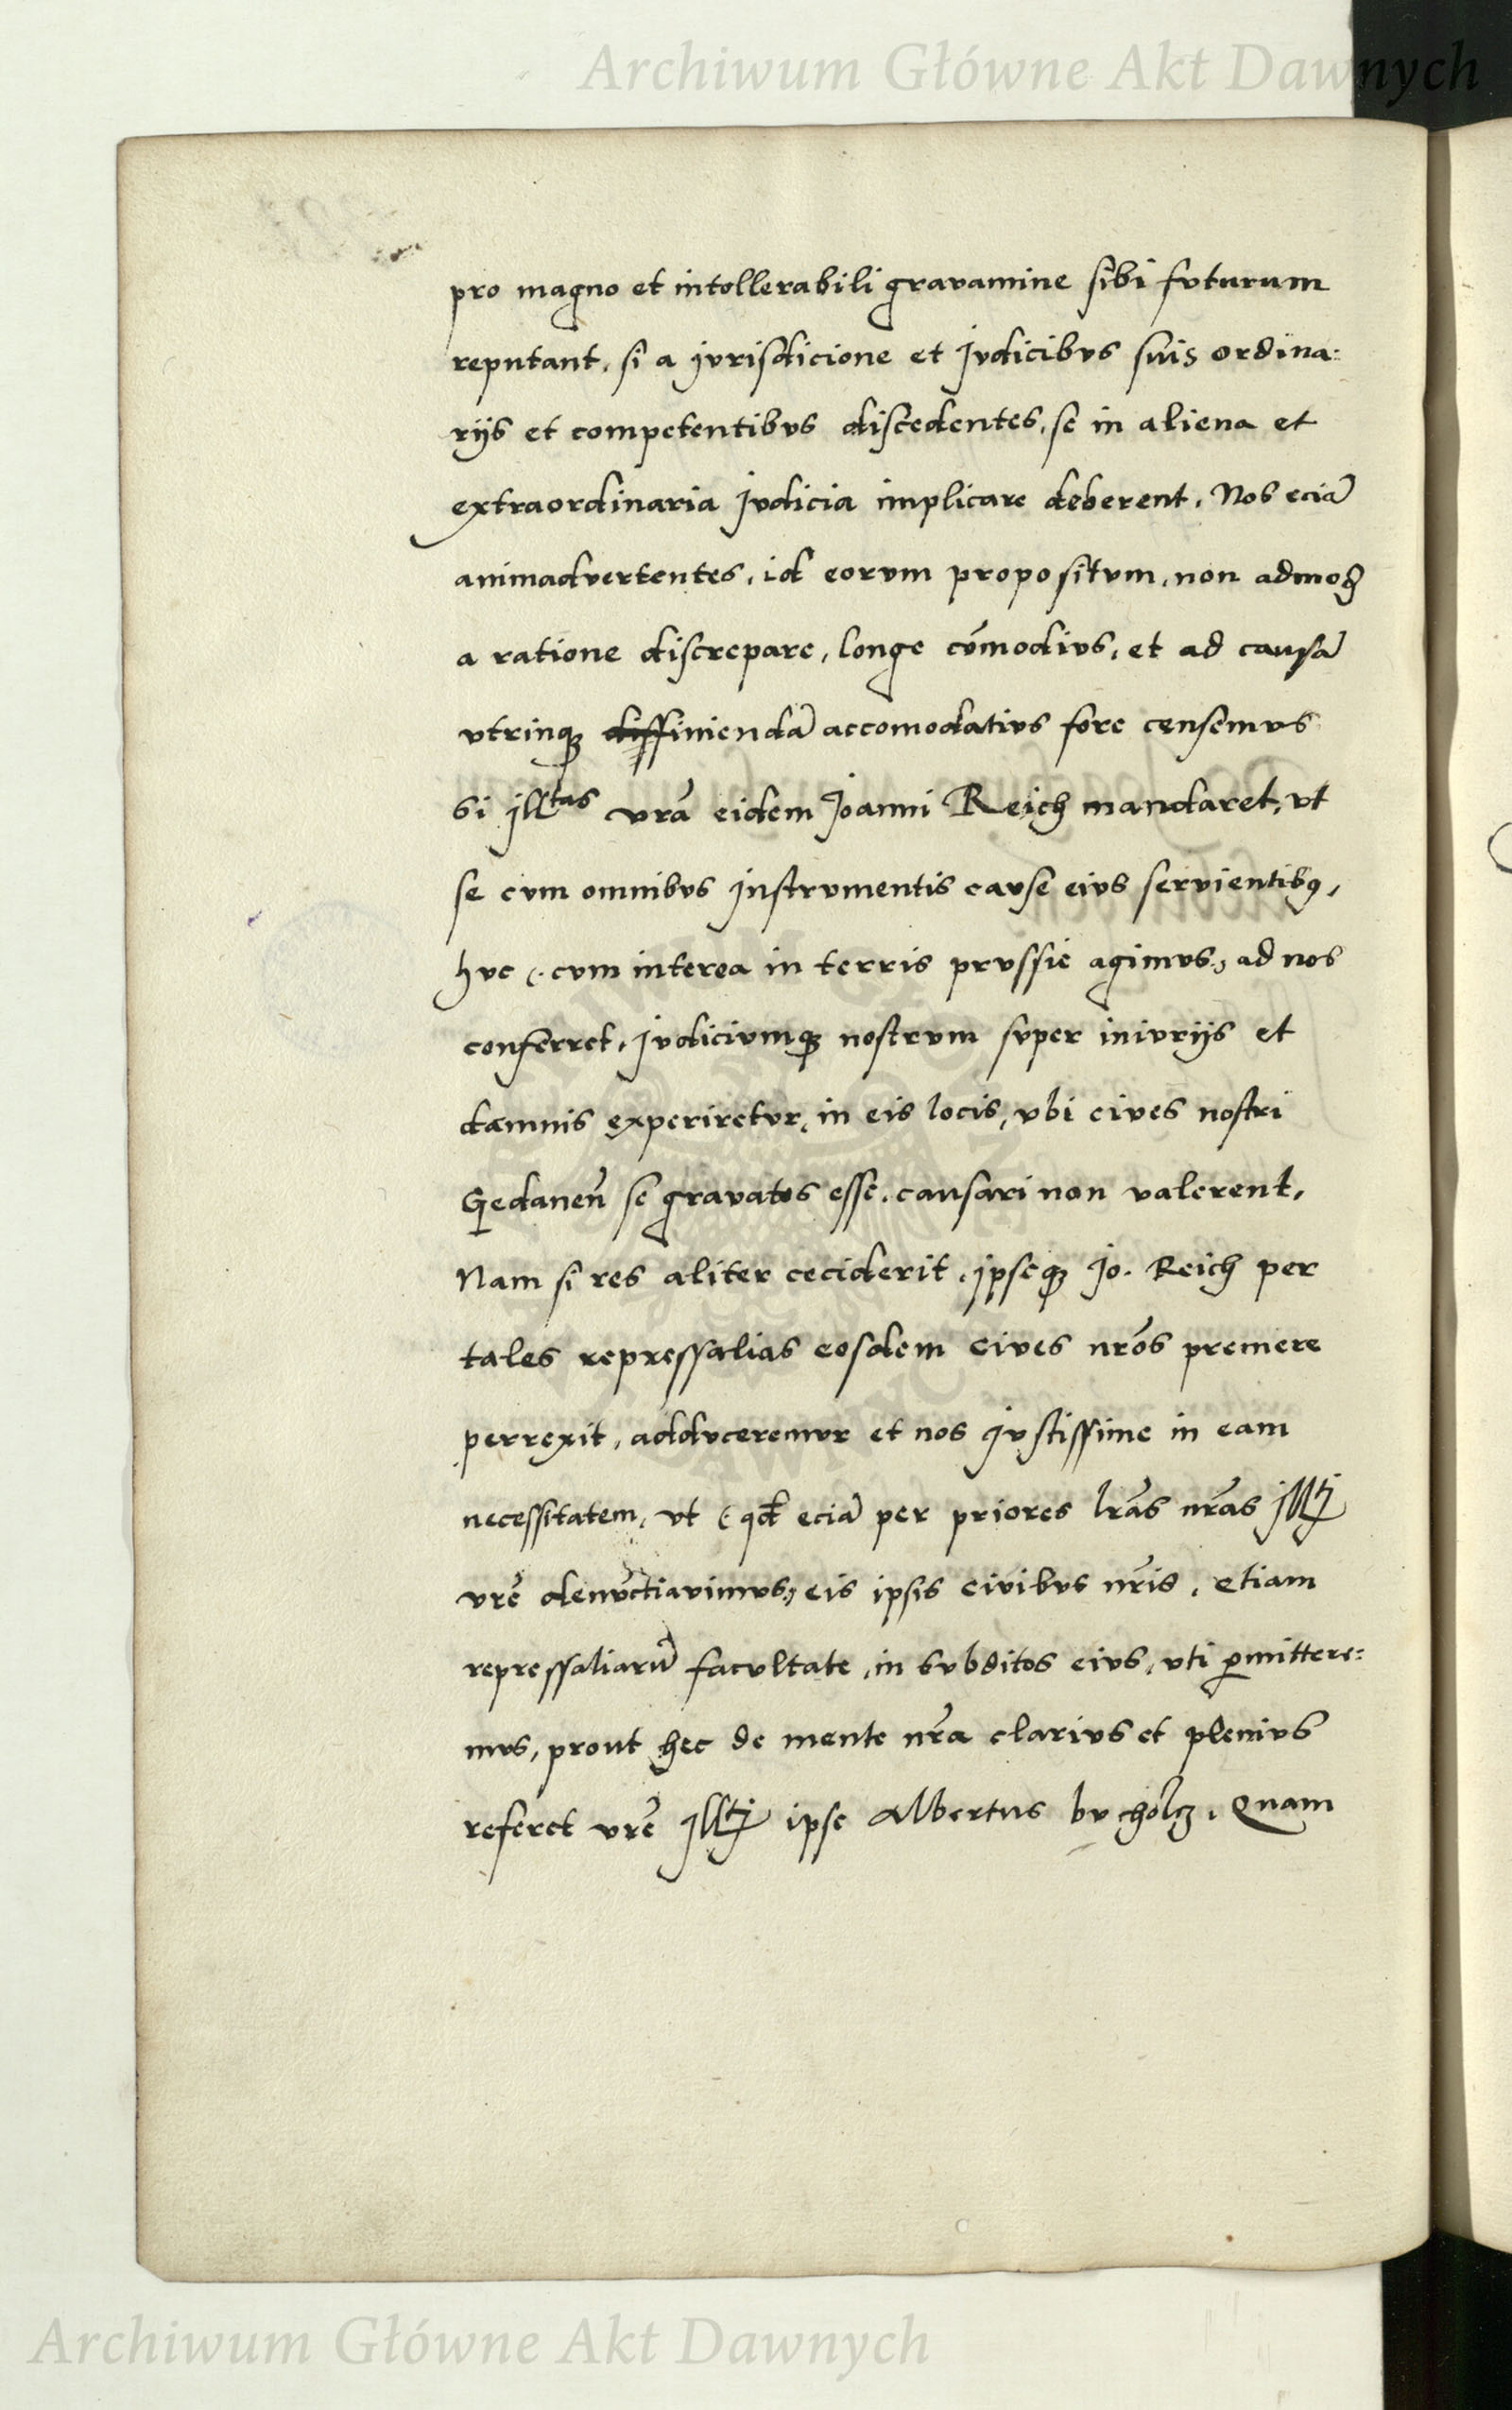 Archiwum Główne Akt Dawnych
pro magno et intollerabili gravamine sibi fvturum
reputant, si a jvrisdicione et Jvdicibvs suis ordina:
rijs et competentibvs discedentes, se in aliena et
extraordinaria Jvdicia implicare deberent, Nos eciã
animadvertentes, id eorvm propositvm, non admoꝺ
a ratione discrepare, longe cõmodivs, et ad causã
vtrinqꝫ diffiniendã accomodativs fore censemvs
Si Jllᵗᵃˢ vrã eidem Joanni Reich mandaret, vt
se cvm omnibvs Jnstrvmentis cavse eivs servientibꝯ,
hvc (. cvm interea in terris prvssie agimvs .) ad nos
conferret, Jvdicivmqꝫ nostrvm svper inivrijs et
damnis experiretvr, in eis locis, vbi cives nostri
Gedaneñ se gravatos esse, causari non valerent,
Nam si res aliter ceciderit, ipseqꝫ Jo. Reich per
tales repressalias eosdem cives nrõs premere
perrexit, addvceremvr et nos jvstissime in eam
necessitatem, vt (. qd̃ eciã per priores lrãs nrãs Jllᵗʲ
vrẽ denũctiavimvs .) eis ipsis civibvs nr̃is, etiam
repressaliarũ facvltate, in svbditos eivs, vti ꝑmittere:
mvs, prout hec de mente nr̃a clarivs et plenivs
referet vrẽ Jllᵗʲ ipse Albertus bvcholcz, Quam
Archiwum Główne Akt Dawnych